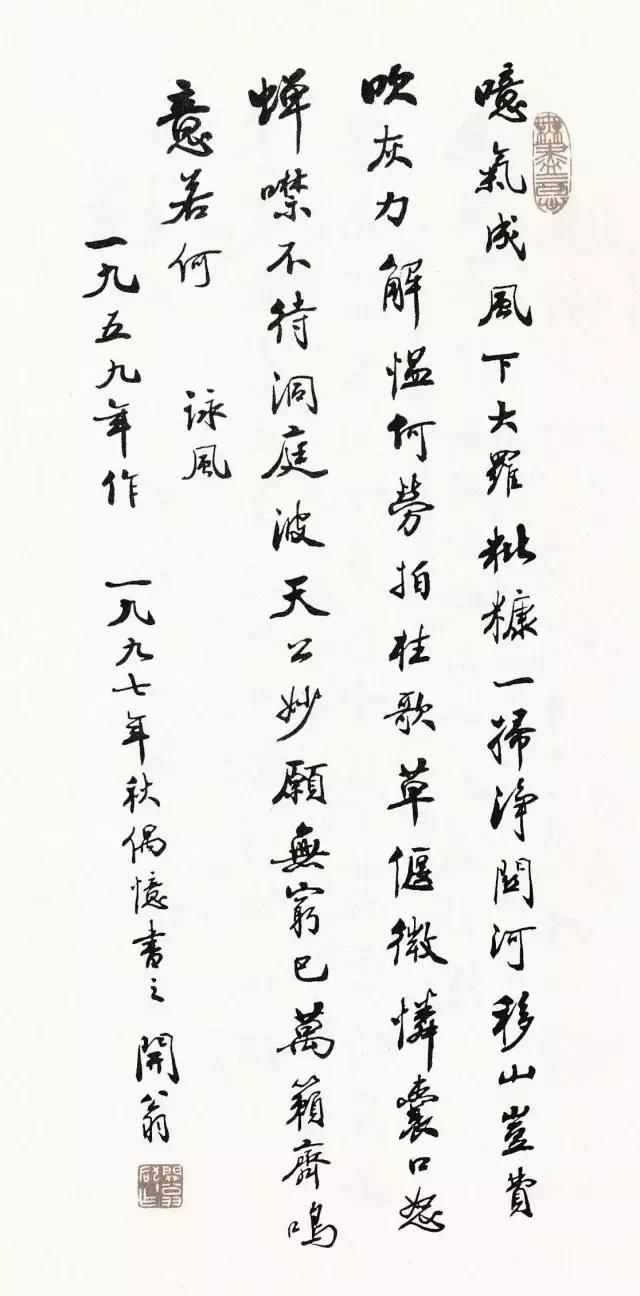 噫氣成風下大羅粃糠一掃淨關河移山豈費
吹灰力解慍何勞拍柱歌草偃微憐囊口怒
蟬噤不待洞庭波天公妙願無窮已萬籟齊鳴
意若何 詠風
一九五九年作 一九九七年秋偶憶書之 開翁